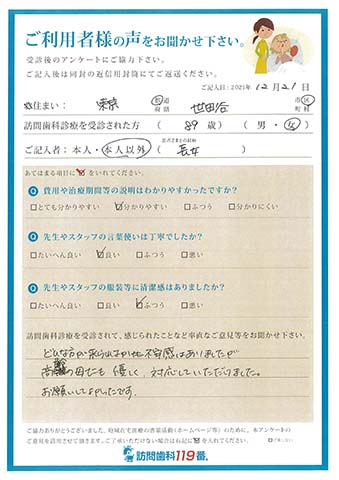 ご利用者様の声をお聞かせ下さい。
受診後のアンケートにご協力下さい。
ご記入後は同封の返信用封筒にてご返送ください。
ご記入日：2021年 12月 21日
お住まい： 東京 都道府県 世田谷 市区町村
訪問歯科診療を受診された方 （ 89 歳） （ 男・女 ）
ご記入者：本人・本人以外 （ 長女 ）
あてはまる項目に☑をいれてください。
Q 費用や治療期間等の説明はわかりやすかったですか？
□とても分かりやすい ☑分かりやすい □ふつう □分かりにくい
Q 先生やスタッフの言葉使いは丁寧でしたか？
□たいへん良い ☑良い □ふつう □悪い
Q 先生やスタッフの服装等に清潔感はありましたか？
□たいへん良い □良い ☑ふつう □悪い
訪問歯科診療を受診されて、感じられたことなど率直なご意見等をお聞かせ下さい。
どんな方が来られるか 不安感はありましたが
高齢の母にも 優しく、対応していただけました。
お願いしてよかったです。
ご協力ありがとうございました。
ご意見を
訪問歯科119番